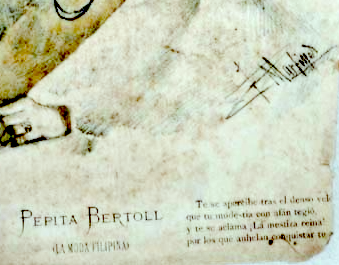 PEPITA BERTOLL
(LA MODA FILIPINA)
Te se apercibe tras el denso vel
que tu modestia con afán tegió,
y te se aclama ¡La mestiza reina!
por los que anhelan conquistar tu